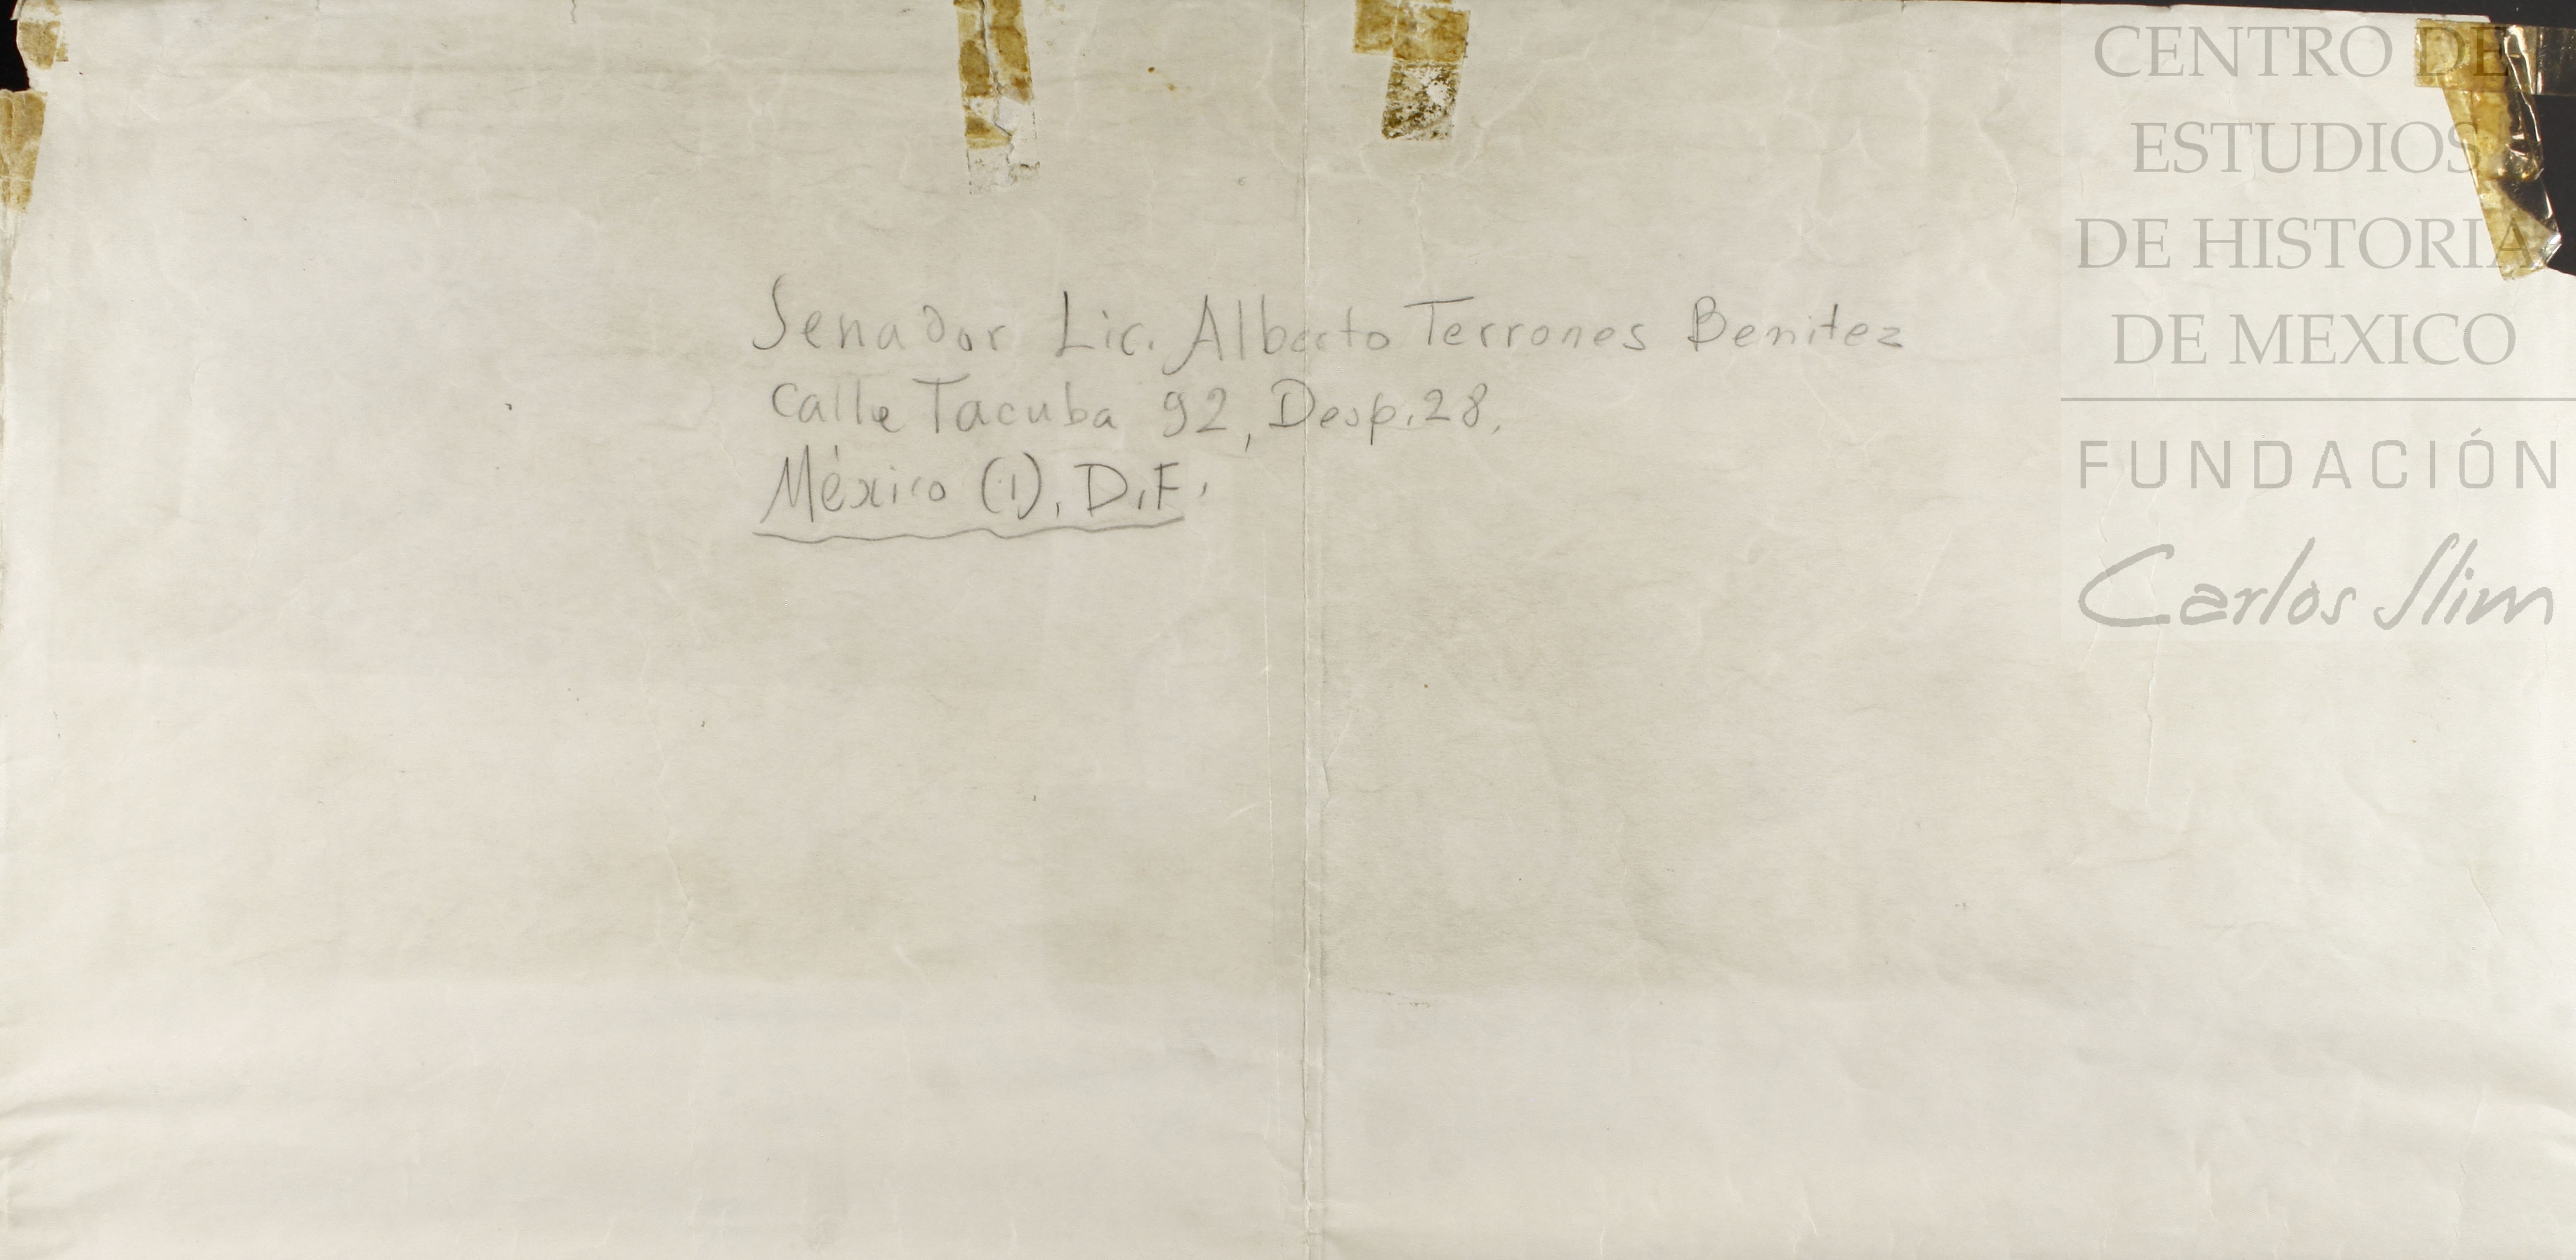 Senador Lic. Alberto Terrones Benitez
Calle Tacuba 92, Desp. 28.
México (1), D.F.
CENTRO DE
ESTUDIOS
DE HISTORIA
DE MEXICO
FUNDACIÓN
Carlos Slim